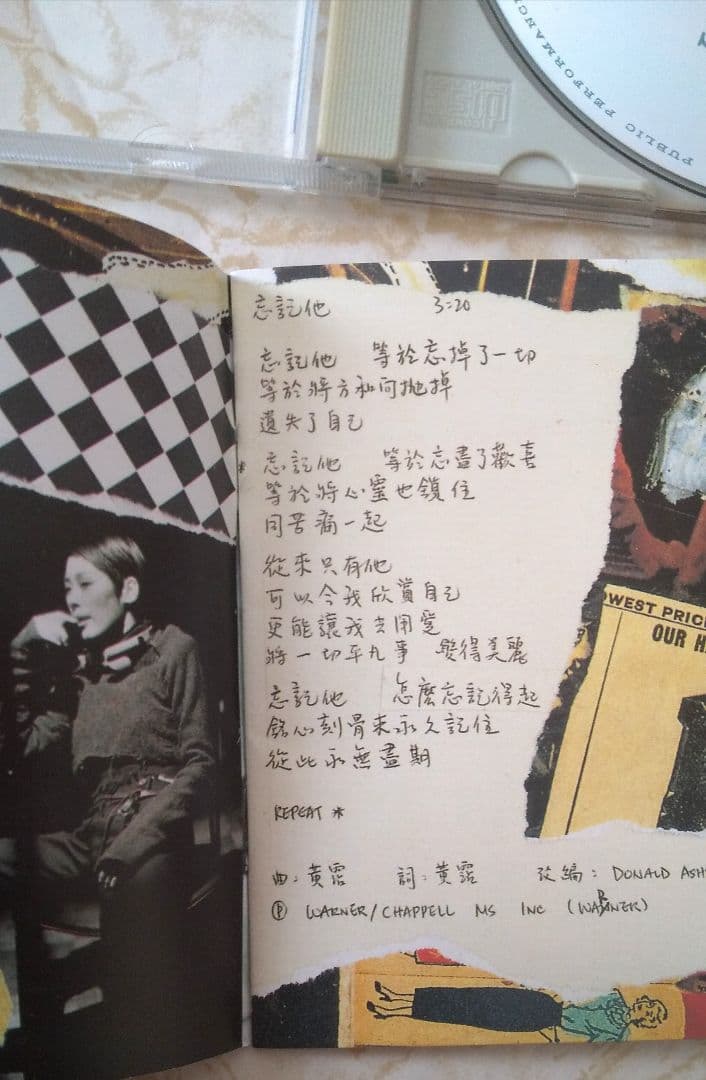 PUBLIC PERFORMANC
忘記他 3:20
忘記他 等於忘掉了一切
等於將方和向拋掉
遺失了自己
* 忘記他 等於忘盡了歡喜
等於將心靈也鎖住
同苦痛一起
從來只有他
可以令我欣賞自己
更能讓我去用愛
將一切平凡事 變得美麗
忘記他 怎麼忘記得起
銘心刻骨來永久記住
從此永無盡期
REPEAT *
曲：黃霑 詞：黃霑 改編：DONALD ASH
Ⓟ WARNER/CHAPPELL MS INC (WARNER)
OWEST PRIC
OUR H